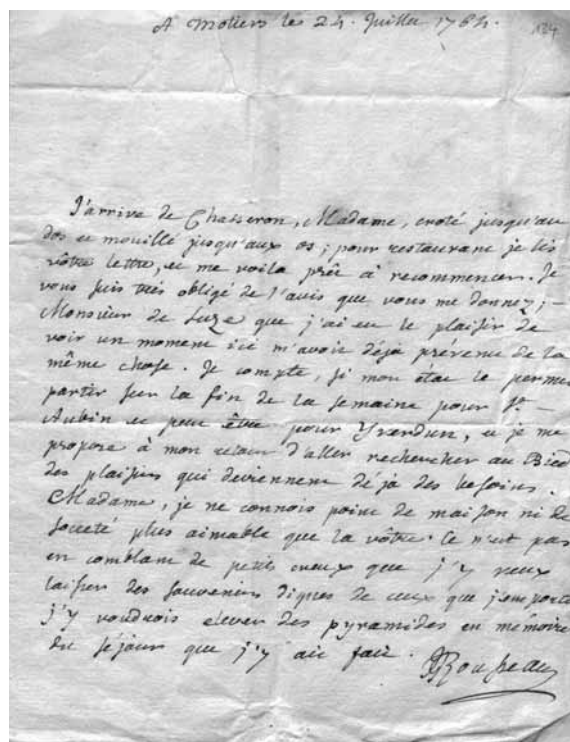 A Motiers les 24. Juillet 1764.
124
J'arrive de Chasseron, Madame, croté jusqu'au
dos et mouillé jusqu'aux os; pour restaurant je lis
vôtre lettre, et me voila prêt à recommencer. Je
vous suis très obligé de l'avis que vous me donnez; -
Monsieur de Luze que j'ai eu le plaisir de
voir un moment ici m'avoit déja prévenu de la
même chose. Je compte, si mon état le permet
partir sur la fin de la semaine pour St. -
Aubin et peut être pour Yverdun, et je me
propose à mon retour d'aller rechercher au Bied
des plaisirs qui deviennent déja des besoins.
Madame, je ne connois point de maison ni de
societé plus aimable que la vôtre. Ce n'est pas
en comblant de petits creux que j'y veux
laisser des souvenirs dignes de ceux que j'emporte
j'y voudrois elever des pyramides en mémoire
du séjour que j'y ai fait.
JJRousseau